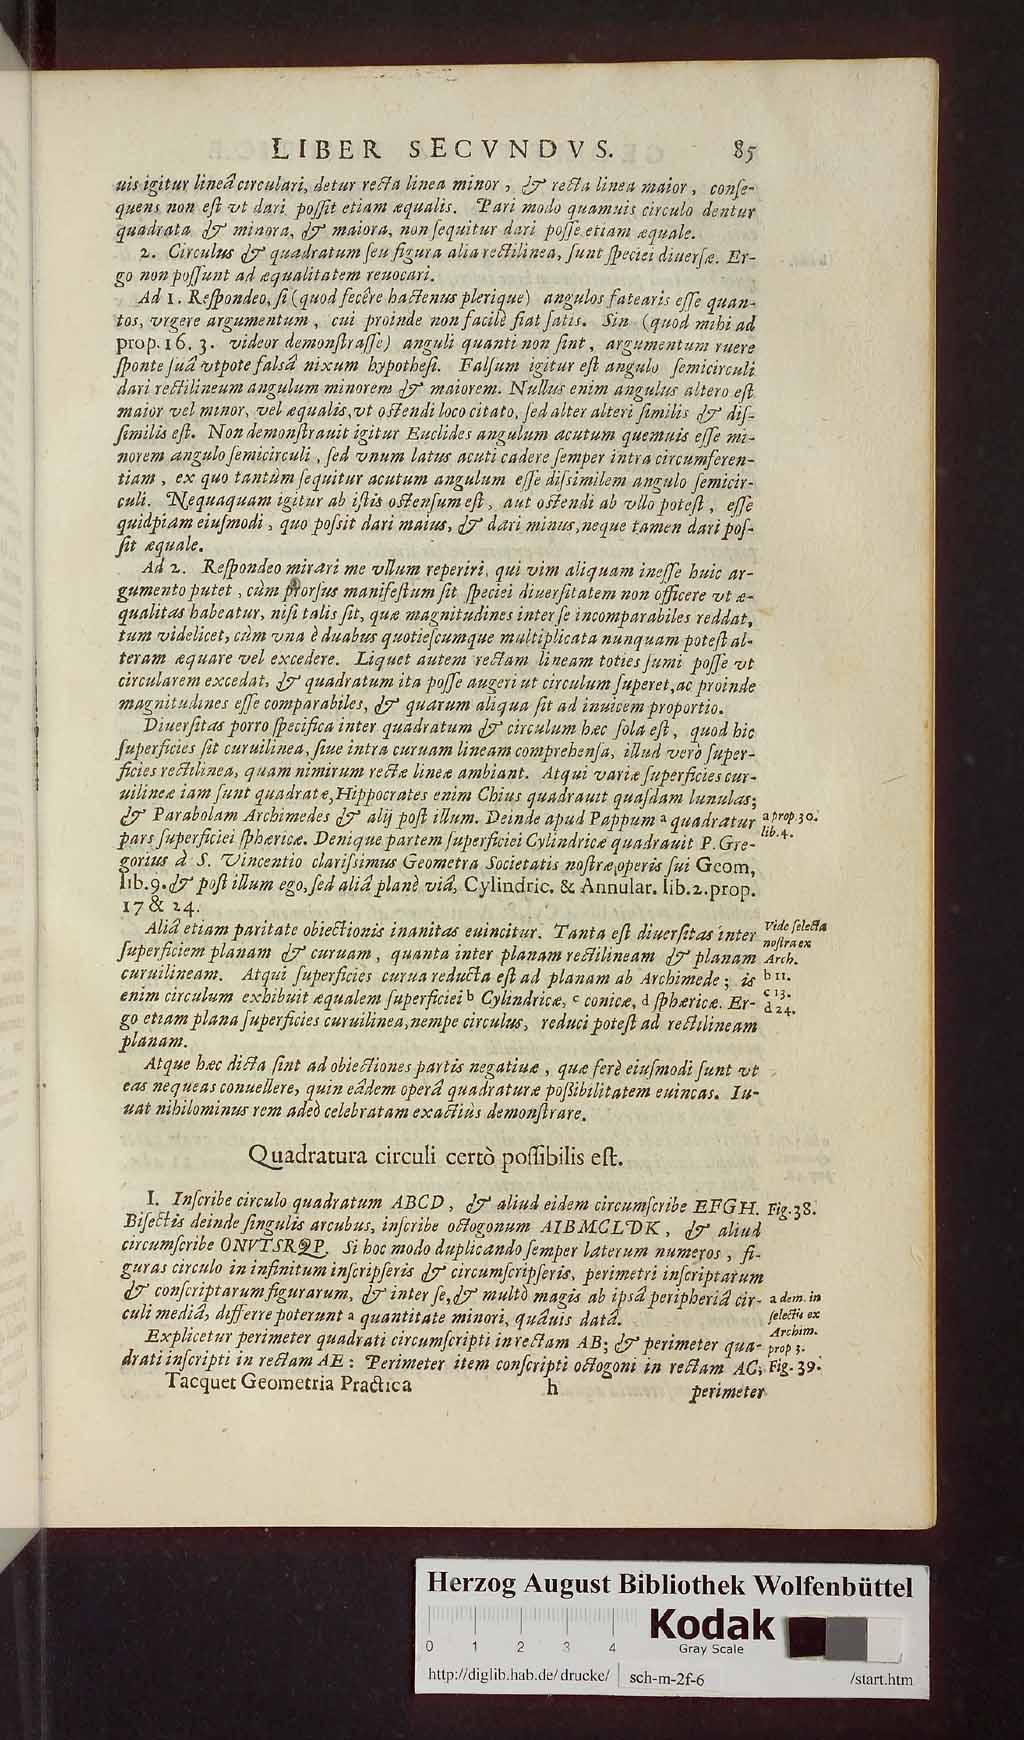 LIBER SECVNDVS. 85
uis igitur lineâ circulari, detur recta linea minor, & recta linea maior, conse-
quens non est vt dari possit etiam æqualis. Pari modo quamuis circulo dentur
quadrata & minora, & maiora, non sequitur dari posse etiam æquale.
2. Circulus & quadratum seu figura alia rectilinea, sunt speciei diuersæ. Er-
go non possunt ad æqualitatem reuocari.
Ad 1. Respondeo, si (quod fecêre hactenus plerique) angulos fatearis esse quan-
tos, vrgere argumentum, cui proinde non facilè fiat satis. Sin (quod mihi ad
prop. 16. 3. videor demonstrasse) anguli quanti non sint, argumentum ruere
sponte suâ vtpote falsâ nixum hypothesi. Falsum igitur est angulo semicirculi
dari rectilineum angulum minorem & maiorem. Nullus enim angulus altero est
maior vel minor, vel æqualis, vt ostendi loco citato, sed alter alteri similis & dis-
similis est. Non demonstrauit igitur Euclides angulum acutum quemuis esse mi-
norem angulo semicirculi, sed vnum latus acuti cadere semper intra circumferen-
tiam, ex quo tantùm sequitur acutum angulum esse dissimilem angulo semicir-
culi. Nequaquam igitur ab istis ostensum est, aut ostendi ab vllo potest, esse
quidpiam eiusmodi, quo possit dari maius, & dari minus, neque tamen dari pos-
sit æquale.
Ad 2. Respondeo mirari me vllum reperiri, qui vim aliquam inesse huic ar-
gumento putet, cùm prorsus manifestum sit speciei diuersitatem non officere vt æ-
qualitas habeatur, nisi talis sit, quæ magnitudines inter se incomparabiles reddat,
tum videlicet, cùm vna è duabus quotiescumque multiplicata nunquam potest al-
teram æquare vel excedere. Liquet autem rectam lineam toties sumi posse vt
circularem excedat, & quadratum ita posse augeri ut circulum superet, ac proinde
magnitudines esse comparabiles, & quarum aliqua sit ad inuicem proportio.
Diuersitas porro specifica inter quadratum & circulum hæc sola est, quod hic
superficies sit curuilinea, siue intra curuam lineam comprehensa, illud verò super-
ficies rectilinea, quam nimirum rectæ lineæ ambiant. Atqui variæ superficies cur-
uilineæ iam sunt quadratæ, Hippocrates enim Chius quadrauit quasdam lunulas;
& Parabolam Archimedes & alij post illum. Deinde apud Pappum a quadratur a prop. 30.
pars superficiei sphæricæ. Denique partem superficiei Cylindricæ quadrauit P. Gre- lib. 4.
gorius à S. Vincentio clarissimus Geometra Societatis nostræ, operis sui Geom,
lib. 9. & post illum ego, sed aliâ planè viâ, Cylindric. & Annular. lib. 2. prop.
17 & 24.
Aliâ etiam paritate obiectionis inanitas euincitur. Tanta est diuersitas inter Vide selecta
superficiem planam & curuam, quanta inter planam rectilineam & planam nostra ex
curuilineam. Atqui superficies curua reducta est ad planam ab Archimede; is Arch.
enim circulum exhibuit æqualem superficiei b Cylindricæ, c conicæ, d sphæricæ. Er- b 11.
go etiam plana superficies curuilinea, nempe circulus, reduci potest ad rectilineam c 13.
planam. d 24.
Atque hæc dicta sint ad obiectiones partis negatiuæ, quæ ferè eiusmodi sunt vt
eas nequeas conuellere, quin eâdem operâ quadraturæ possibilitatem euincas. Iu-
uat nihilominus rem adeò celebratam exactiùs demonstrare.
Quadratura circuli certò possibilis est.
I. Inscribe circulo quadratum ABCD, & aliud eidem circumscribe EFGH. Fig. 38.
Bisectis deinde singulis arcubus, inscribe octogonum AIBMCLDK, & aliud
circumscribe ONVTSRQP. Si hoc modo duplicando semper laterum numeros, fi-
guras circulo in infinitum inscripseris & circumscripseris, perimetri inscriptarum
& conscriptarum figurarum, & inter se, & multò magis ab ipsâ peripheriâ cir- a dem. in
culi mediâ, differre poterunt a quantitate minori, quâuis datâ. selectis ex
Explicetur perimeter quadrati circumscripti in rectam AB; & perimeter qua- Archim.
prop 3.
drati inscripti in rectam AE: Perimeter item conscripti octogoni in rectam AC; Fig. 39.
Tacquet Geometria Practica h perimeter
Herzog August Bibliothek Wolfenbüttel
0 1 2 3 4
Kodak
Gray Scale
http://diglib.hab.de/drucke/ sch-m-2f-6 /start.htm